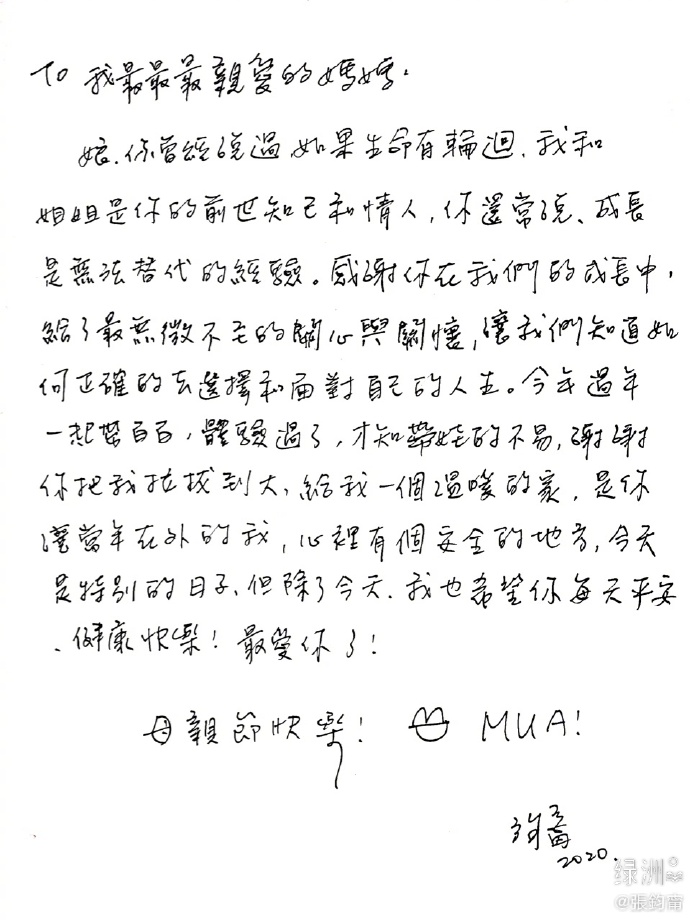 TO 我最最最親愛的媽媽.
娘.你曾經說過如果生命有輪迴.我和
姐姐是你的前世知己和情人,你還常說、成長
是無法替代的經驗。感謝你在我們的成長中,
給了最無微不至的關心與關懷,讓我們知道如
何正確的去選擇和面對自己的人生。今年過年
一起帶百百,體驗過了,才知帶娃的不易,謝謝
你把我拉拔到大、給我一個溫暖的家,是你
讓當年在外的我,心裡有個安全的地方,今天
是特別的日子、但除了今天.我也希望你每天平安
、健康快樂!最愛你了!
母親節快樂! MUA!
鈞甯
2020.
绿洲
@張鈞甯